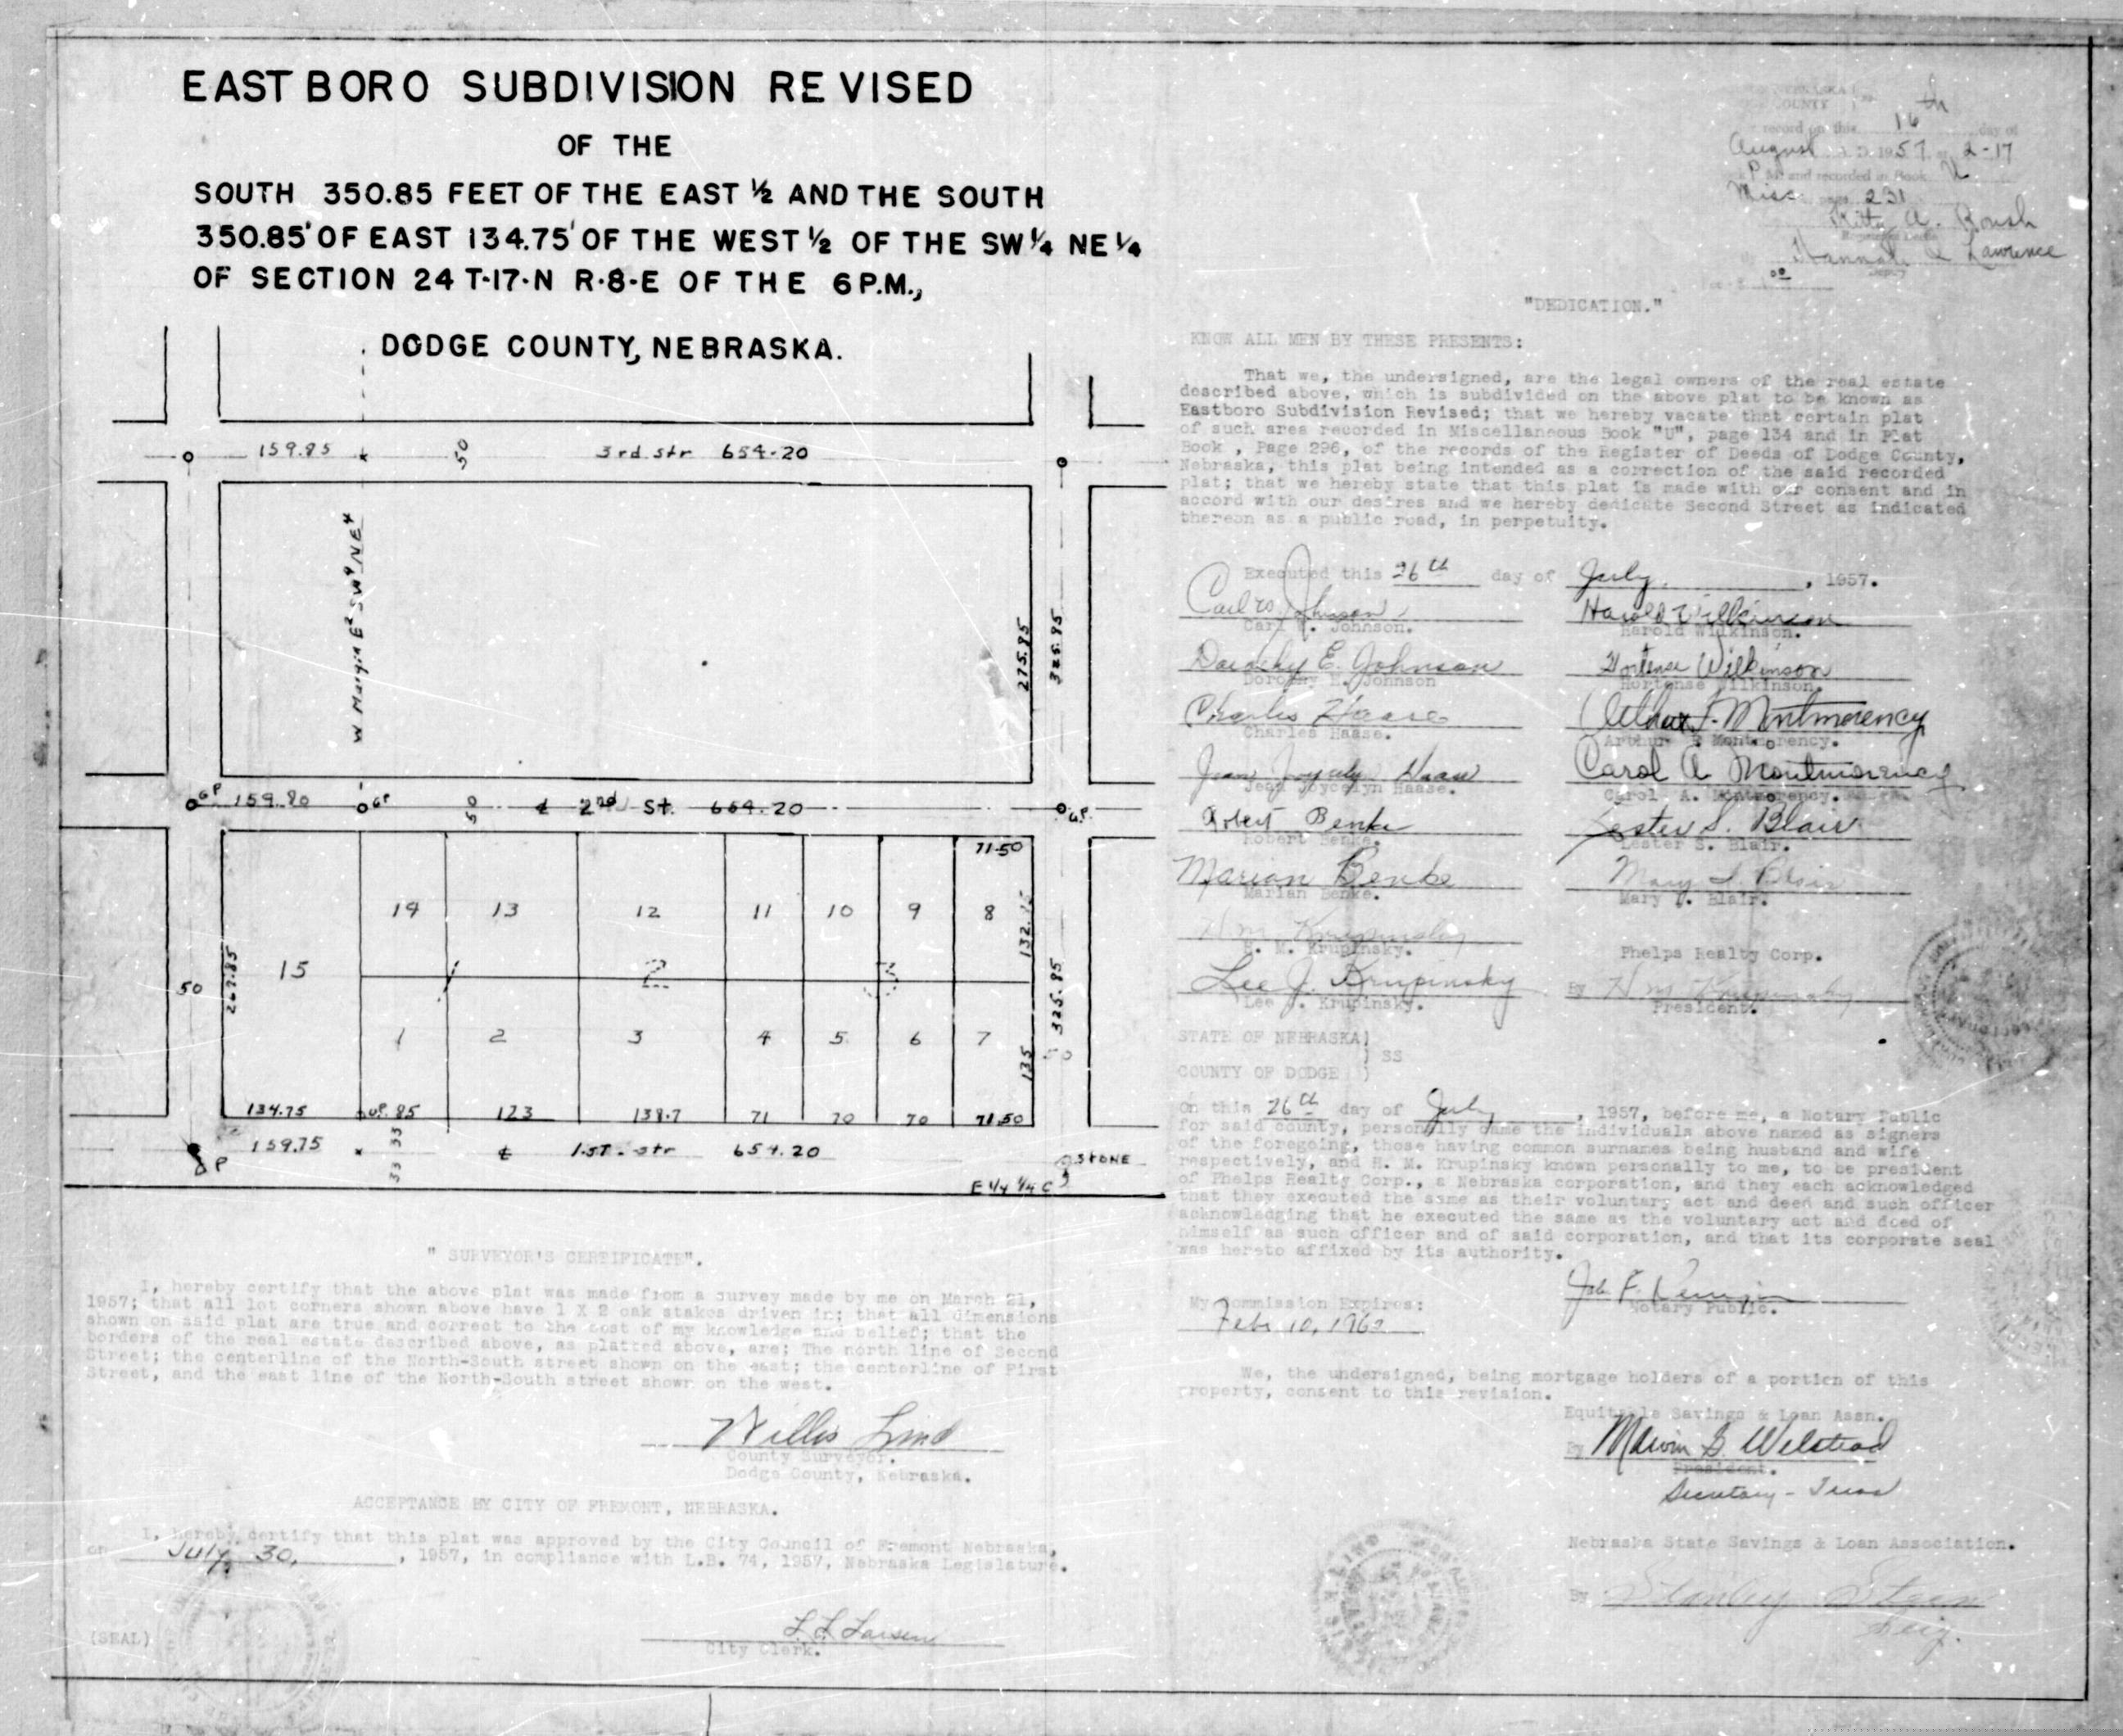 EASTBORO SUBDIVISION REVISED
OF THE
SOUTH 350.85 FEET OF THE EAST ½ AND THE SOUTH
350.85' OF EAST 134.75' OF THE WEST ½ OF THE SW ¼ NE ¼
OF SECTION 24 T-17-N R-8-E OF THE 6 P.M.,
DODGE COUNTY, NEBRASKA.
159.85 50 3rd str 654.20
W Margin E² SW⁴ NE⁴
275.85 325.85
GP 159.80 GP 50 ¢ 2nd St. 654.20 G.P.
71.50
14 13 12 11 10 9 8
132.15
15 1 2 3
50 267.85
325.85
1 2 3 4 5 6 7
135 50
134.75 85 123 138.7 71 70 70 71.50
159.75 33 33 ¢ 1.ST. str 654.20
STONE
E ¼ ¼ C
" SURVEYOR'S CERTIFICATE".
I, hereby certify that the above plat was made from a survey made by me on March 21,
1957; that all lot corners shown above have 1 X 2 oak stakes driven in; that all dimensions
shown on said plat are true and correct to the best of my knowledge and belief; that the
borders of the real estate described above, as platted above, are; The north line of Second
Street; the centerline of the North-South street shown on the east; the centerline of First
Street, and the east line of the North-South street shown on the west.
Willis Lind
County Surveyor.
Dodge County, Nebraska.
ACCEPTANCE BY CITY OF FREMONT, NEBRASKA.
I, hereby certify that this plat was approved by the City Council of Fremont Nebraska,
on July 30, , 1957, in compliance with L.B. 74, 1957, Nebraska Legislature.
(SEAL)
L. L. Larsen
City Clerk.
NEBRASKA
COUNTY
record on this 16th day of
August A. D. 1957 at 2-17
P M and recorded in Book U
Misc page 231
A. Roush
Hannah Lawrence
Deputy
"DEDICATION."
KNOW ALL MEN BY THESE PRESENTS:
That we, the undersigned, are the legal owners of the real estate
described above, which is subdivided on the above plat to be known as
Eastboro Subdivision Revised; that we hereby vacate that certain plat
of such area recorded in Miscellaneous Book "U", page 134 and in Plat
Book , Page 296, of the records of the Register of Deeds of Dodge County,
Nebraska, this plat being intended as a correction of the said recorded
plat; that we hereby state that this plat is made with our consent and in
accord with our desires and we hereby dedicate Second Street as indicated
thereon as a public road, in perpetuity.
Executed this 26th day of July, , 1957.
Carl W. Johnson Harold Wilkinson
Carl W. Johnson. Harold Wilkinson.
Dorothy E. Johnson Hortense Wilkinson
Dorothy E. Johnson Hortense Wilkinson.
Charles Haase Arthur F. Montmorency
Charles Haase. Arthur F Montmorency.
Jean Joycelyn Haase Carol A. Montmorency
Jean Joycelyn Haase. Carol A. Montmorency.
Robert Benke Lester S. Blair
Robert Benke. Lester S. Blair.
Marian Benke Mary Blair
Marian Benke. Mary Blair.
H. M. Krupinsky
H. M. Krupinsky. Phelps Realty Corp.
Lee J. Krupinsky By H M Krupinsky
Lee J. Krupinsky. President.
STATE OF NEBRASKA)
) SS
COUNTY OF DODGE )
On this 26th day of July , 1957, before me, a Notary Public
for said county, personally came the individuals above named as signers
of the foregoing, those having common surnames being husband and wife
respectively, and H. M. Krupinsky known personally to me, to be president
of Phelps Realty Corp., a Nebraska corporation, and they each acknowledged
that they executed the same as their voluntary act and deed and such officer
acknowledging that he executed the same as the voluntary act and deed of
himself as such officer and of said corporation, and that its corporate seal
was hereto affixed by its authority.
Notary Public.
My Commission Expires:
Feb. 10, 1962
We, the undersigned, being mortgage holders of a portion of this
property, consent to this revision.
Equitable Savings & Loan Assn.
By Marvin G. Welstead
President.
Secretary - Treas
Nebraska State Savings & Loan Association.
By Stanley